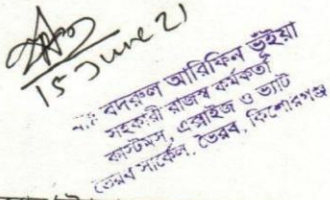 15 June 21
বদরুল আরিফিন ভূঁইয়া
সহকারী রাজস্ব কর্মকর্তা
কাস্টমস, এক্সাইজ ও ভ্যাট
ভৈরব সার্কেল, ভৈরব, কিশোরগঞ্জ